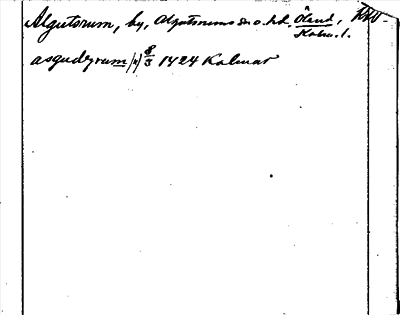 Algutsrum, by, Algutsrums sn o. hd. Öland,
Kalm. l.
asgudzrum (x) 8/3 1424 Kalmar